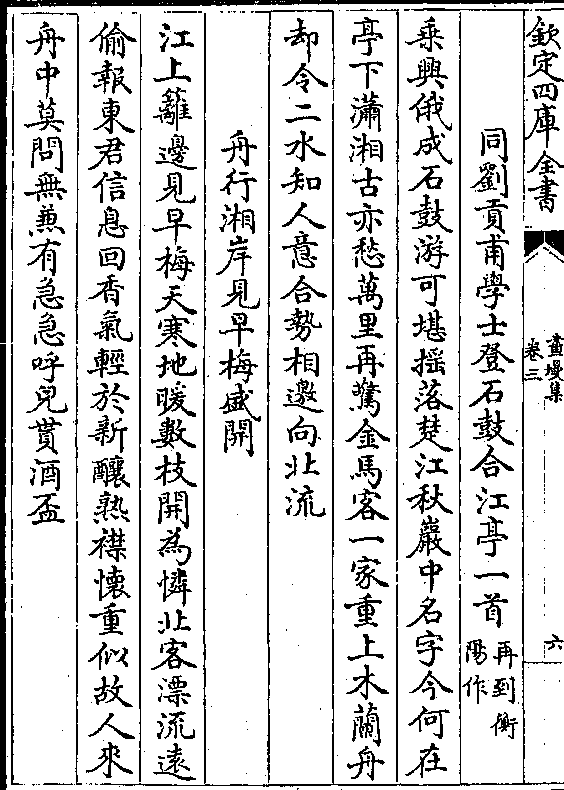 欽定四庫全書
畫墁集
卷三
六
同劉貢甫學士登石鼓合江亭一首
再到衡
陽作
乗興俄成石鼓游可堪揺落楚江秋巖中名字今何在
亭下瀟湘古亦愁萬里再驚金馬客一家重上木蘭舟
却令二水知人意合勢相邀向北流
舟行湘岸見早梅盛開
江上籬邊見早梅天寒地暖數枝開為憐北客漂流逺
偷報東君信息回香氣輕於新釀熟襟懐重似故人來
舟中莫問無兼有急急呼兒貰酒盃